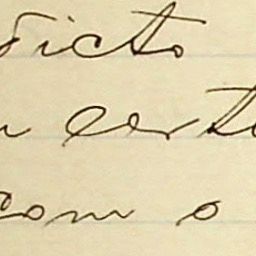 dicto
certo
com o